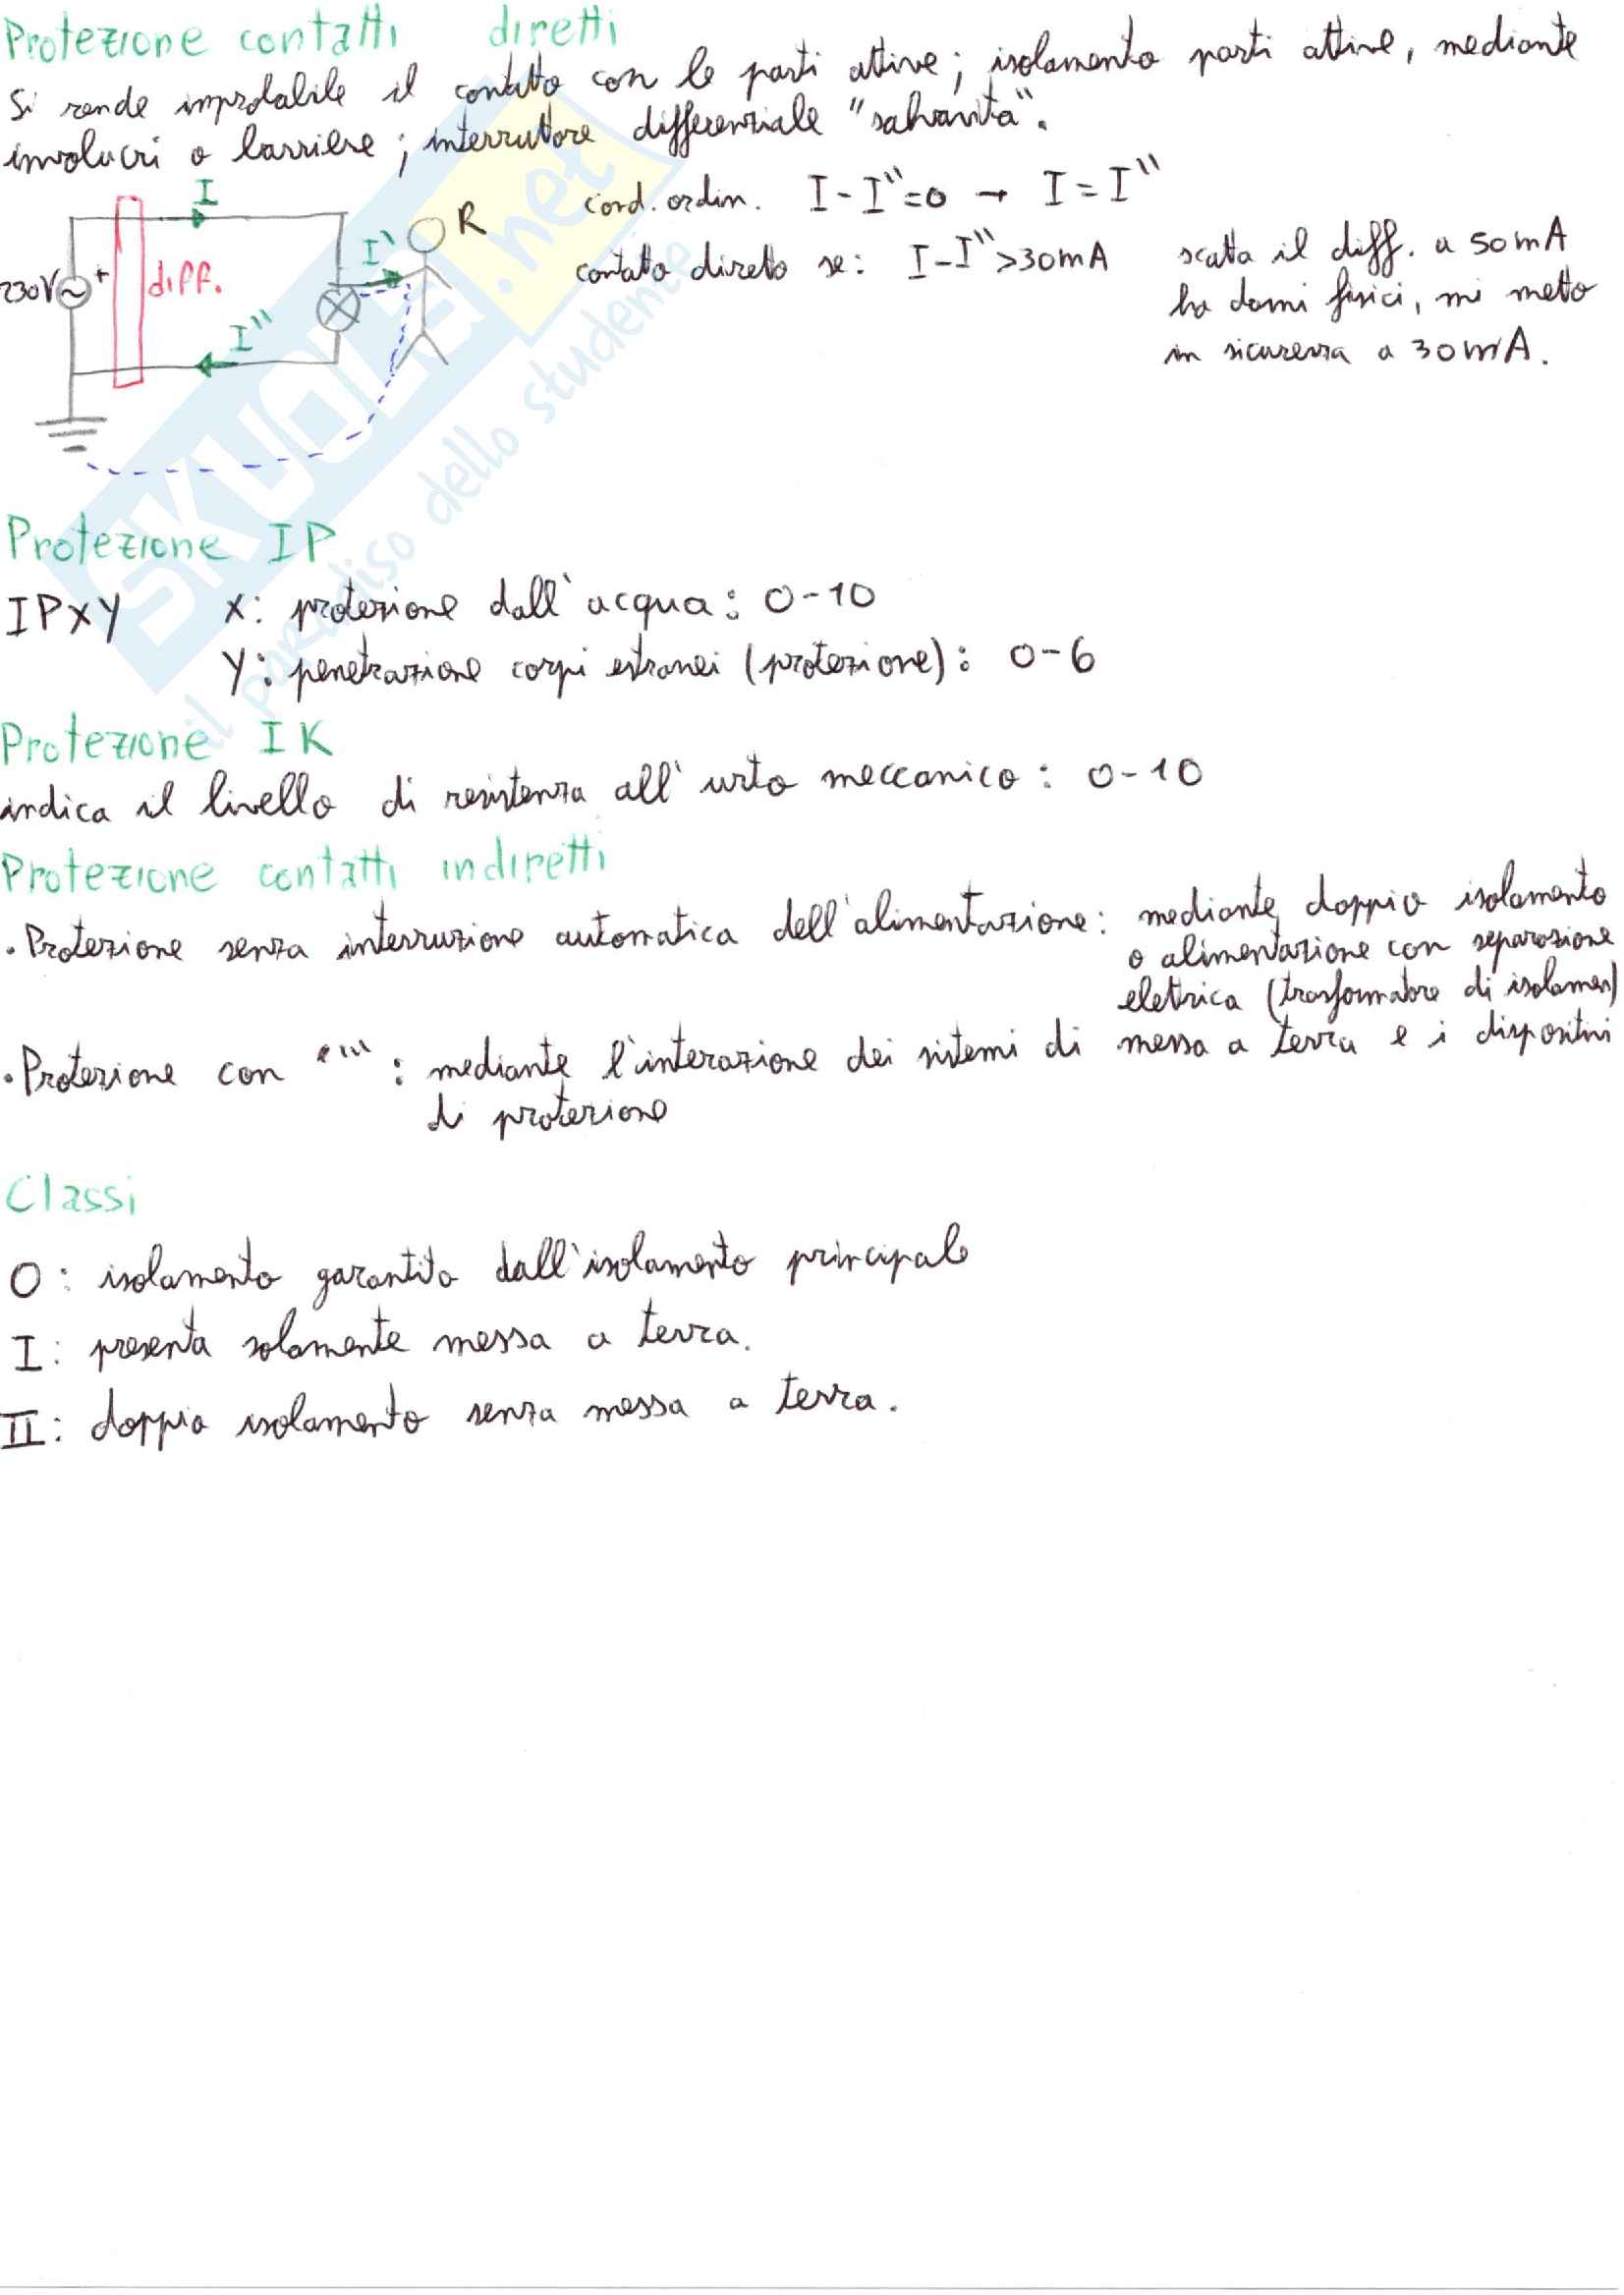 Protezione contatti diretti
Si rende improbabile il contatto con le parti attive; isolamento parti attive, mediante
involucri o barriere; interruttore differenziale "salvavita".
I
cord. ordin. I-I''=0 → I=I''
R
I'
contatto diretto se: I-I''>30mA scatta il diff. a 50mA
230V + diff.
ho danni fisici, mi metto
I''
in sicurezza a 30mA.
SKUOLA.net
il paradiso dello studente
Protezione IP
IPXY X: protezione dall'acqua: 0-10
Y: penetrazione corpi estranei (protezione): 0-6
Protezione IK
indica il livello di resistenza all'urto meccanico: 0-10
Protezione contatti indiretti
· Protezione senza interruzione automatica dell'alimentazione: mediante doppio isolamento
o alimentazione con separazione
elettrica (trasformatore di isolamen)
· Protezione con " " " : mediante l'interazione dei sistemi di messa a terra e i dispositivi
di protezione
Classi
0: isolamento garantito dall'isolamento principale
I: presenta solamente messa a terra.
II: doppio isolamento senza messa a terra.